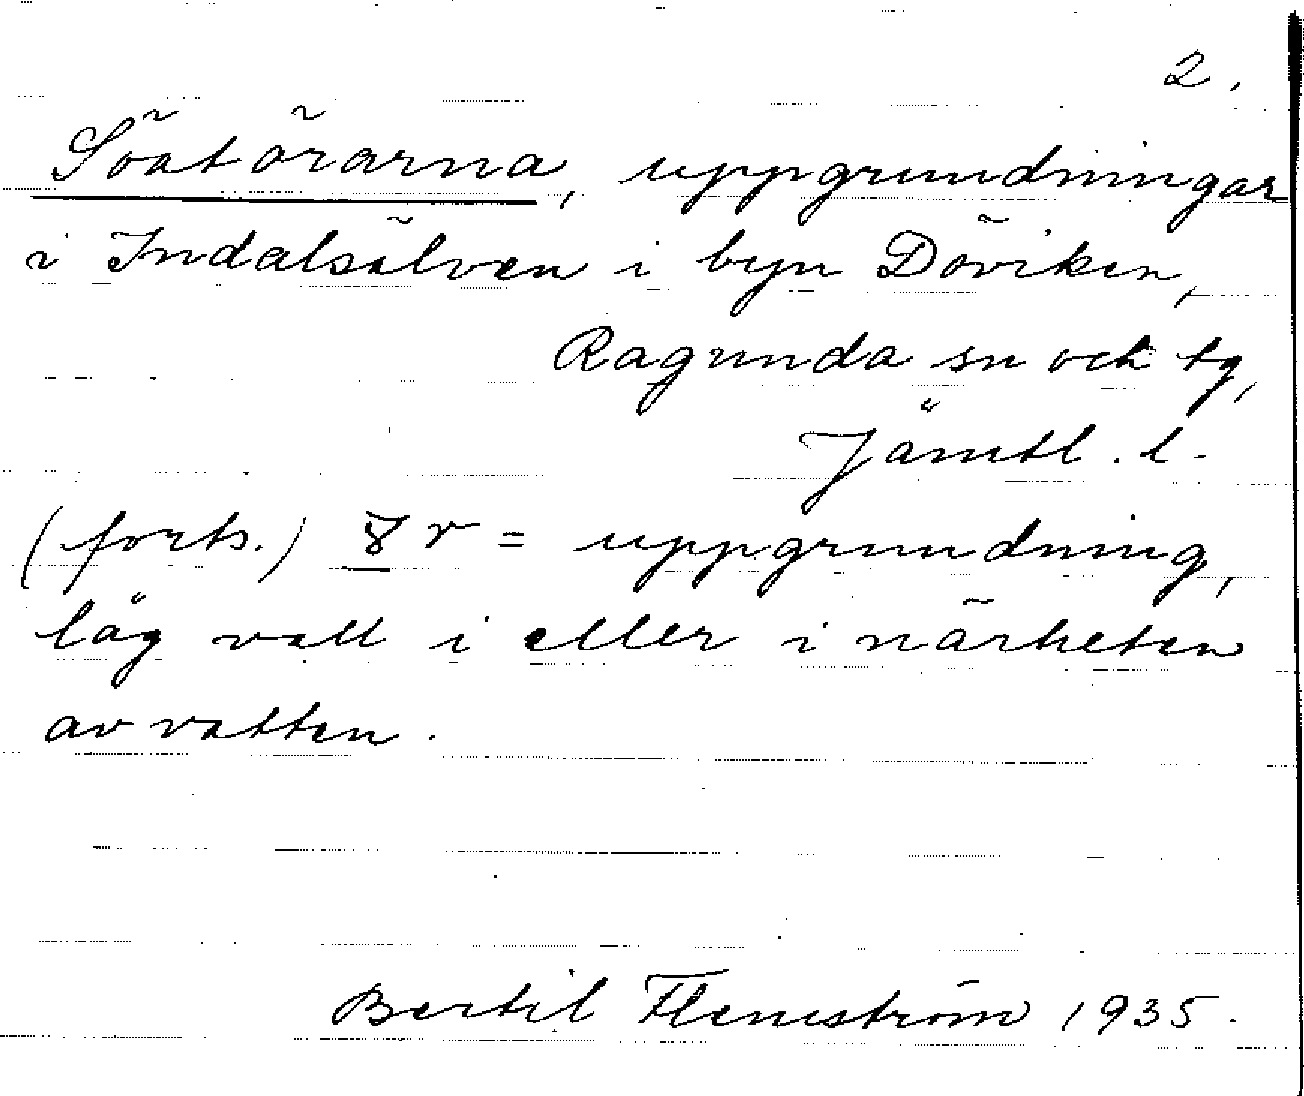 2.
Söatörarna, uppgrundningar
i Indalsälven i byn Döviken,
Ragunda sn ock tg,
Jämtl. l.
(forts.) r = uppgrundning,
låg vall i eller i närheten
av vatten.
Bertil Flemström 1935.